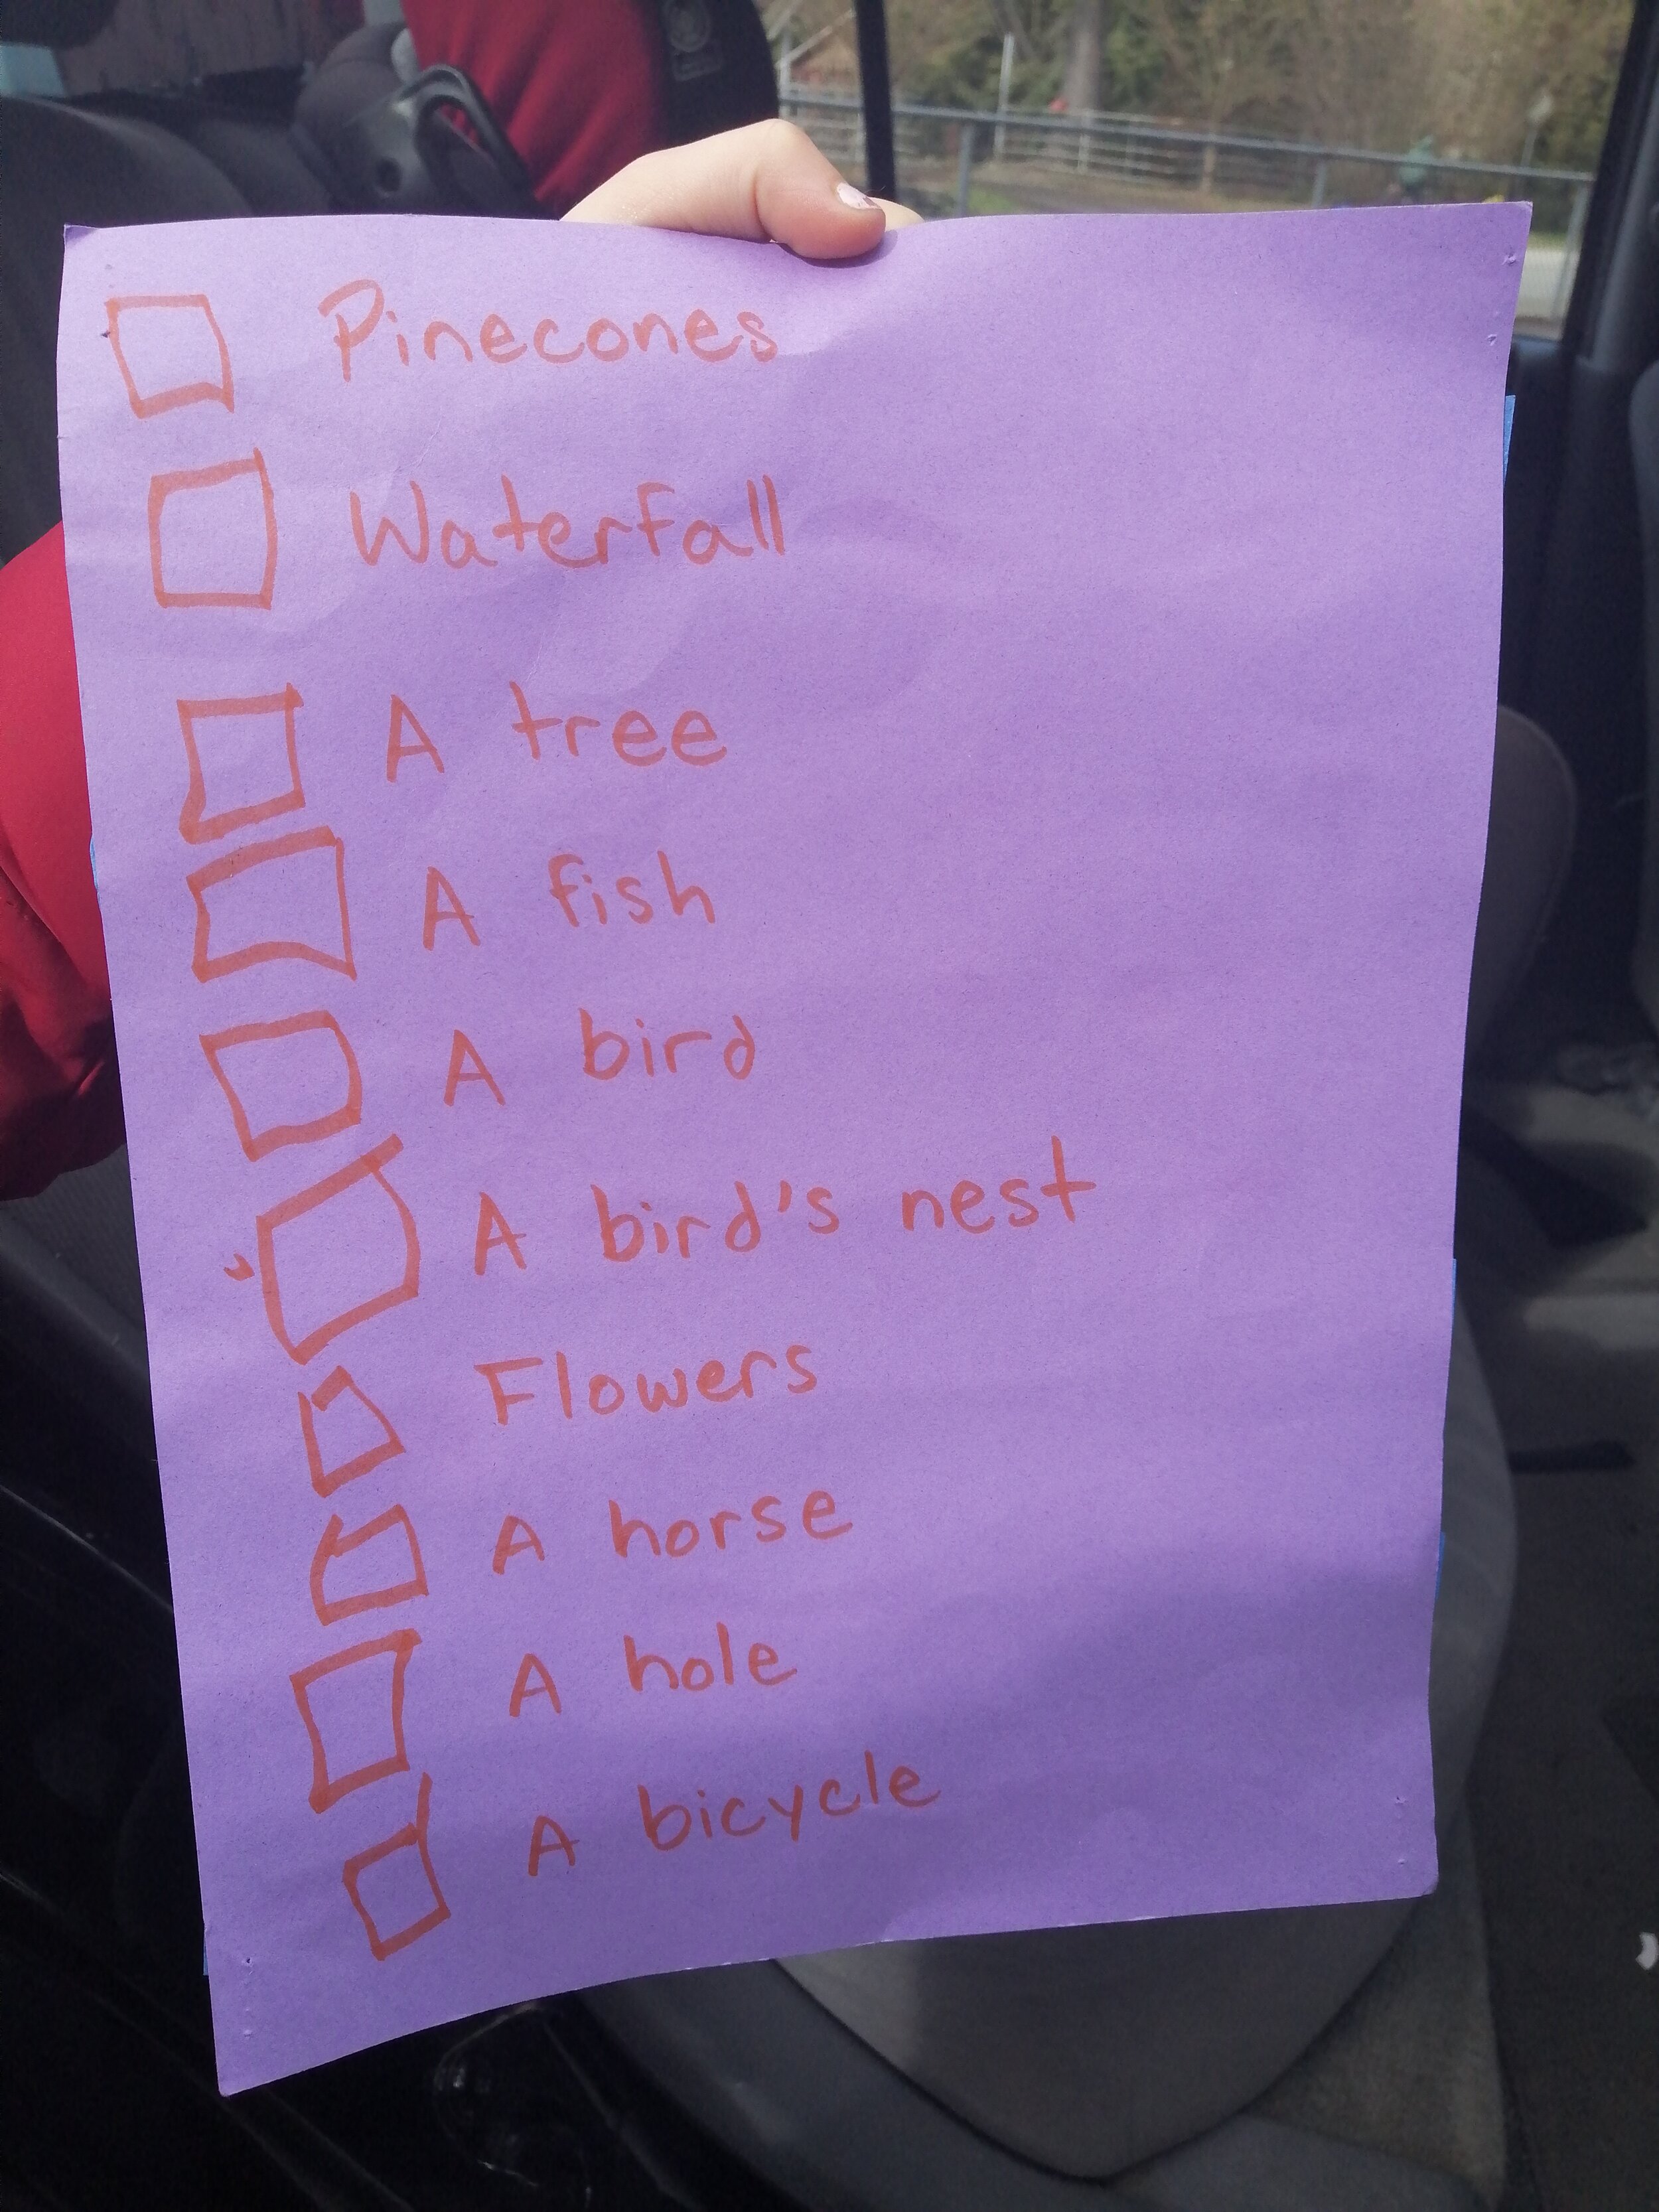 Pinecones
Waterfall
A tree
A fish
A bird
A bird's nest
Flowers
A horse
A hole
A bicycle